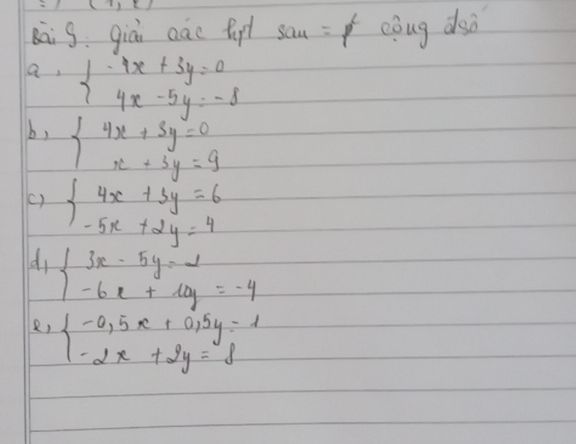 Bài 9: Giải các hpt sau = f² cộng đsố
a, { -4x + 3y = 0
4x - 5y = -8
b, { 4x + 3y = 0
x + 3y = 9
c) { 4x + 3y = 6
-5x + 2y = 4
d, { 3x - 5y = 2
-6x + 10y = -4
e, { -0,5x + 0,5y = 1
-2x + 2y = 8